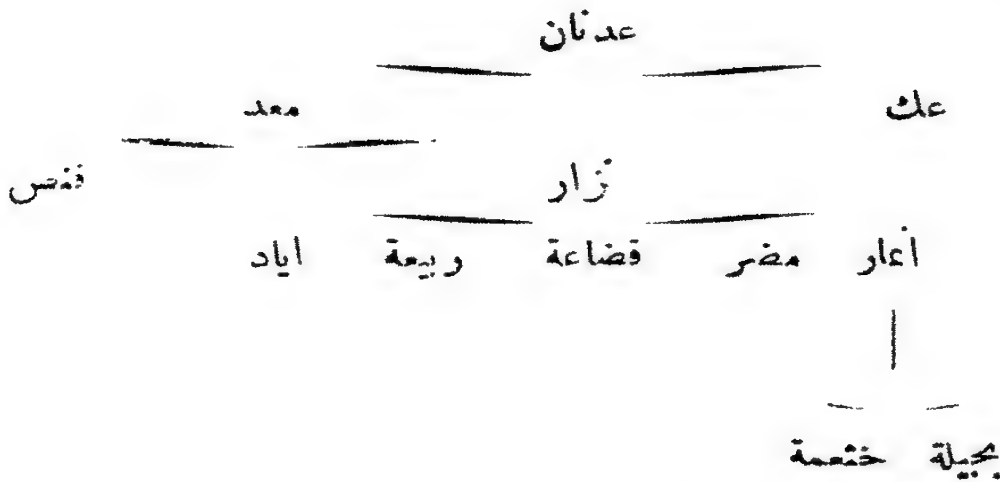 عدنان
عك معد
نزار قنص
أنمار مضر قضاعة ربيعة اياد
بجيلة خثعمة